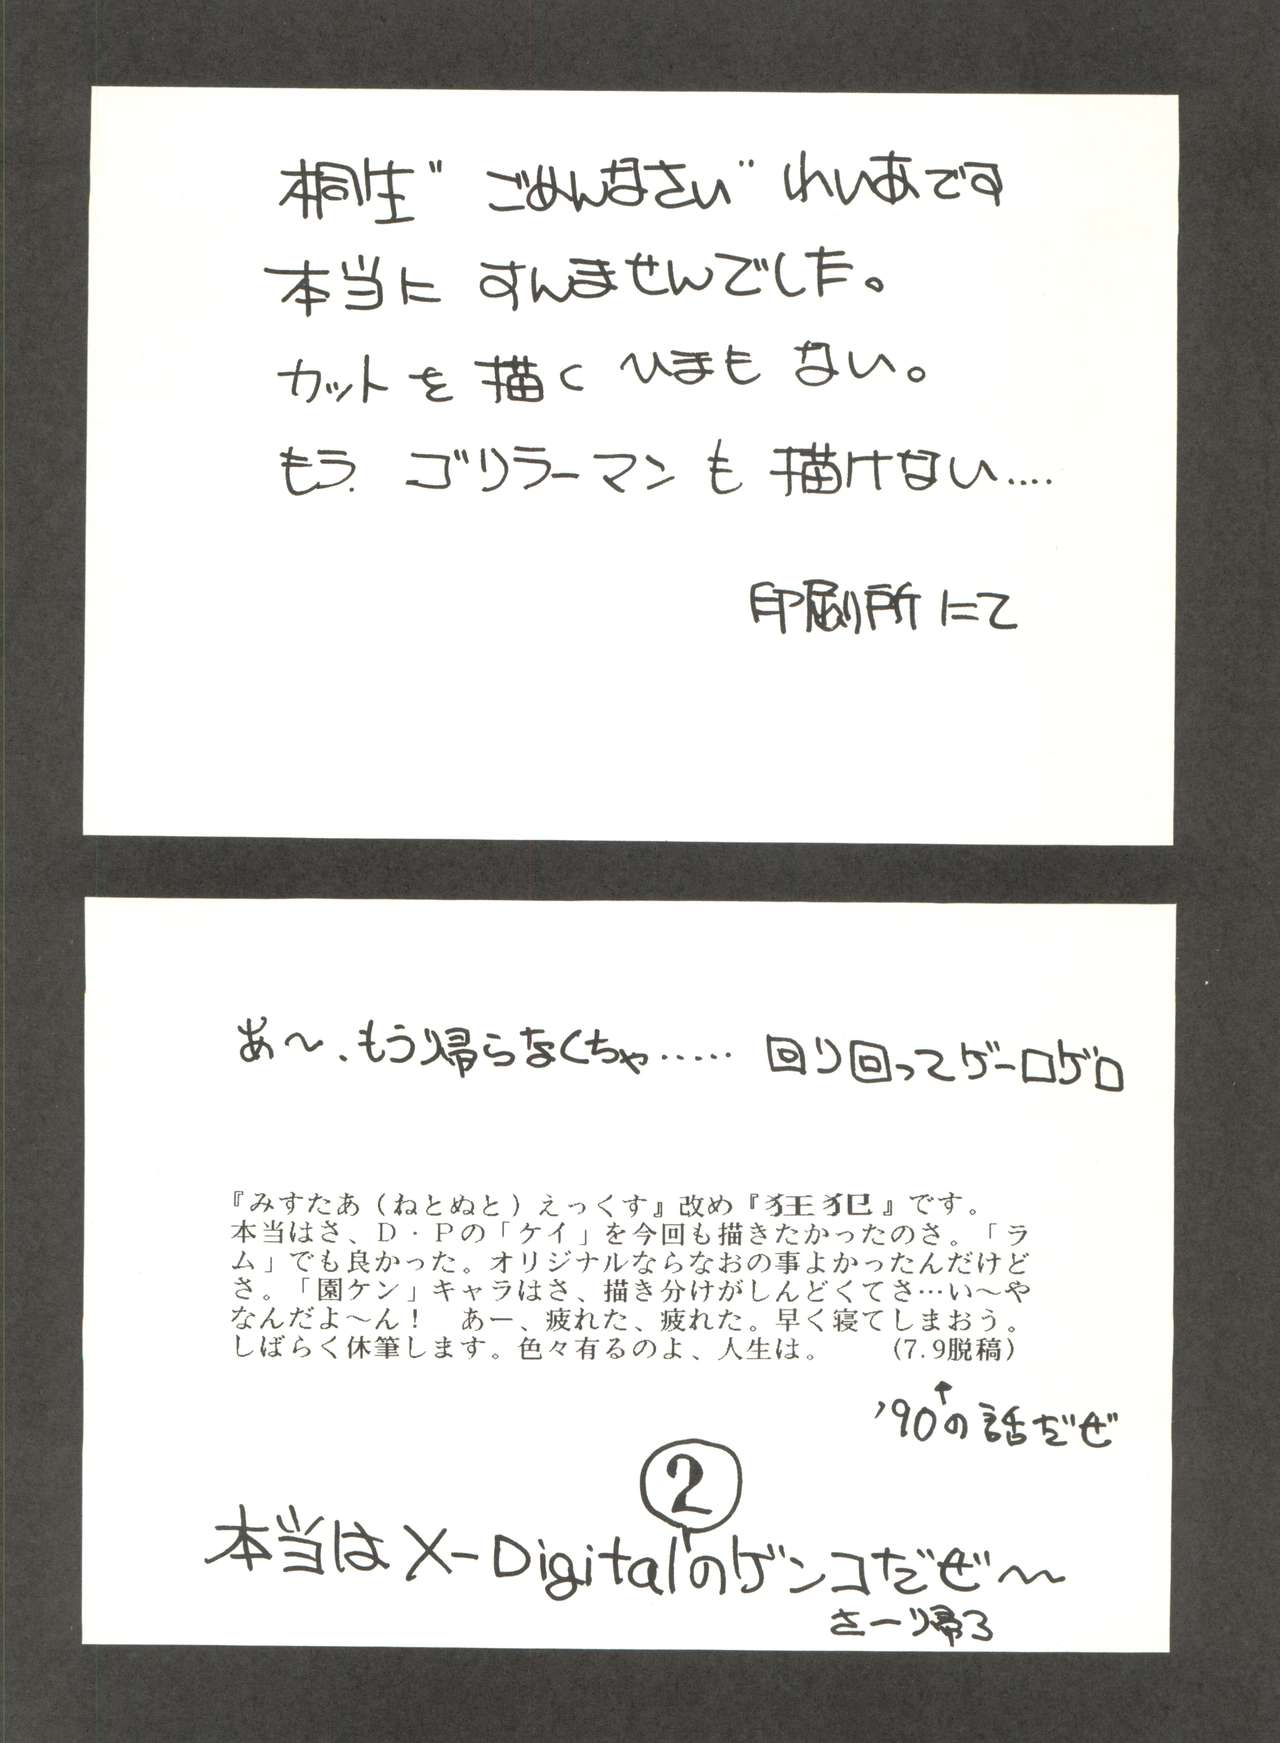 桐生"ごめんなさい"れいあです
本当に すんませんでした。
カットを描くひまもない。
もう.ゴリラーマンも描けない....
印刷所にて
あ〜、もう帰らなくちゃ..... 回り回ってゲーロゲロ
『みすたあ（ねとぬと）えっくす』改め『狂犯』です。
本当はさ、D・Pの「ケイ」を今回も描きたかったのさ。「ラ
ム」でも良かった。オリジナルならなおの事よかったんだけど
さ。「園ケン」キャラはさ、描き分けがしんどくてさ…い〜や
なんだよ〜ん！　あー、疲れた、疲れた。早く寝てしまおう。
しばらく休筆します。色々有るのよ、人生は。　　(7.9脱稿)
'90↑の話だぜ
②
本当はX-Digitalのゲンコだぜ〜
さーり帰ろ